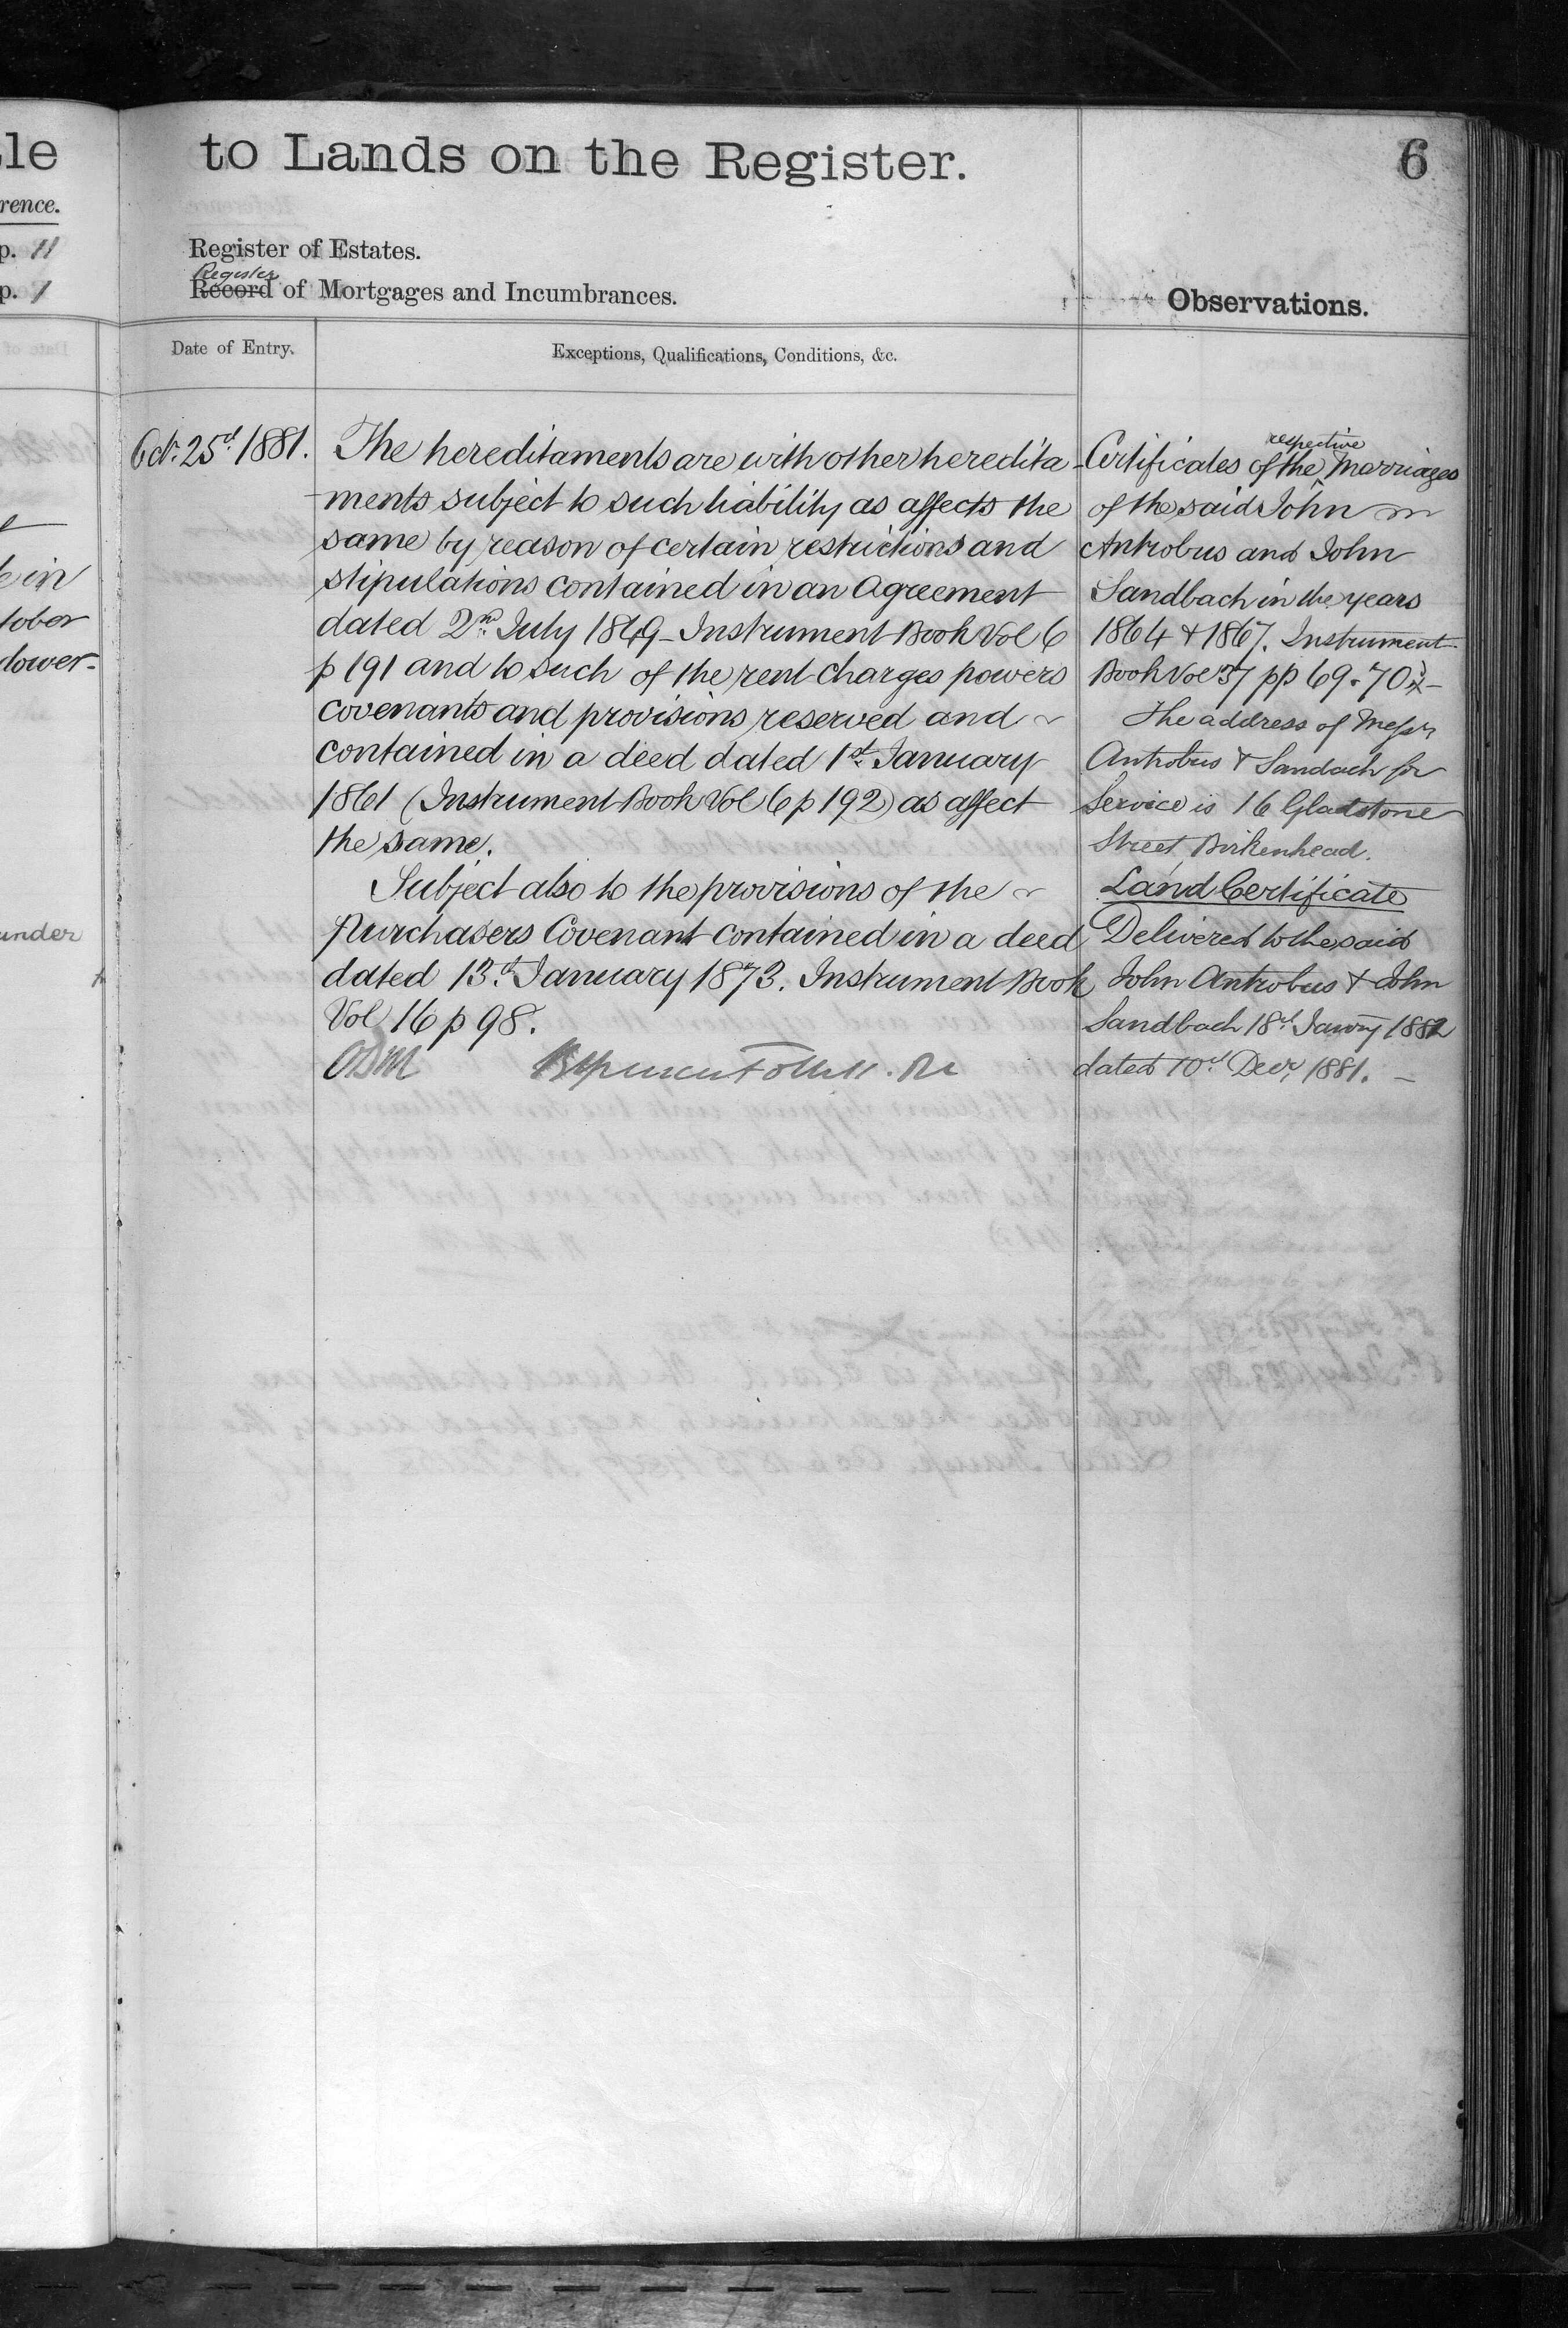 le
to Lands on the Register.
6
rence.
p. 11
Register of Estates.
Register
p. 1
Record of Mortgages and Incumbrances.
Observations.
Date of Entry.
Exceptions, Qualifications, Conditions, &c.
Oct: 25th 1881.
The hereditaments are with other heredita-
ments subject to such liability as affects the
same by reason of certain restrictions and
stipulations contained in an Agreement
dated 2nd July 1849 - Instrument Book Vol 6
p 191 and to such of the rent charges powers
covenants and provisions reserved and
contained in a deed dated 1st January
1861 (Instrument Book Vol 6 p 192) as affect
the same.
Subject also to the provisions of the
Purchasers Covenant contained in a deed
dated 13th January 1873. Instrument Book
Vol 16 p 98.
respective
Certificates of the ^ Marriages
of the said John
Antrobus and John
Sandbach in the years
1864 & 1867. Instrument
Book Vol 37 pp 69 . 70
The address of Messrs
Antrobus & Sandach for
Service is 16 Gladstone
Street, Birkenhead.
Land Certificate
Delivered to the said
John Antrobus & John
Sandbach 18th Janry 1882
dated 10th Decr, 1881. -
e in
tober
dower-
under